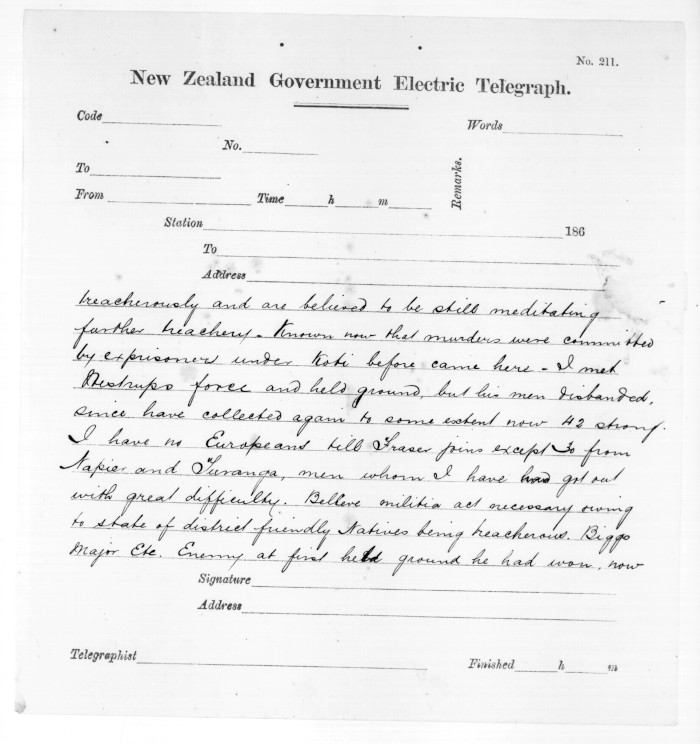 No. 211.
New Zealand Government Electric Telegraph.
Code
Words
No.
To
Remarks.
From Time h m
Station 186
To
Address
treacherously and are believed to be still meditating
further treachery. Known now that murders were committed
by exprisoners under Koti before came here - I met
Westrups force and held ground, but his men disbanded,
since have collected again to some extent now 42 strong.
I have no Europeans till Fraser joins except 30 from
Napier and Turanga, men whom I have had got out
with great difficulty. Believe militia act necessary owing
to state of district friendly Natives being treacherous. Biggs
Major Etc. Enemy at first held ground he had won, now
Signature
Address
Telegraphist Finished h m